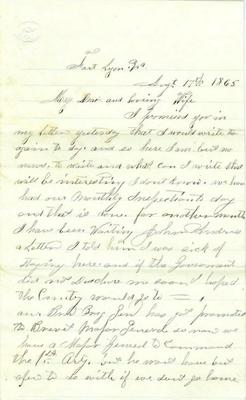 Fort Lyon Va
Augt 17th 1865
My Dear and loving Wife
I promised you in
my letter yesterday that I would write to
you again to day and so here I am but no
news to write and what can I write that
will be interesting I dont know. we have
had our Monthly Inspection to day
and that is done for another month
I have been writing John Andrew
a letter I told him I was sick of
staying here and if the Government
did not discharge me soon I hoped
the Country would go to —,
our Brig Gen has got promoted
to Brevet Major General so now we
have a Major General to Command
the 1st Arty. but he wont have but
few to with if we dont go home